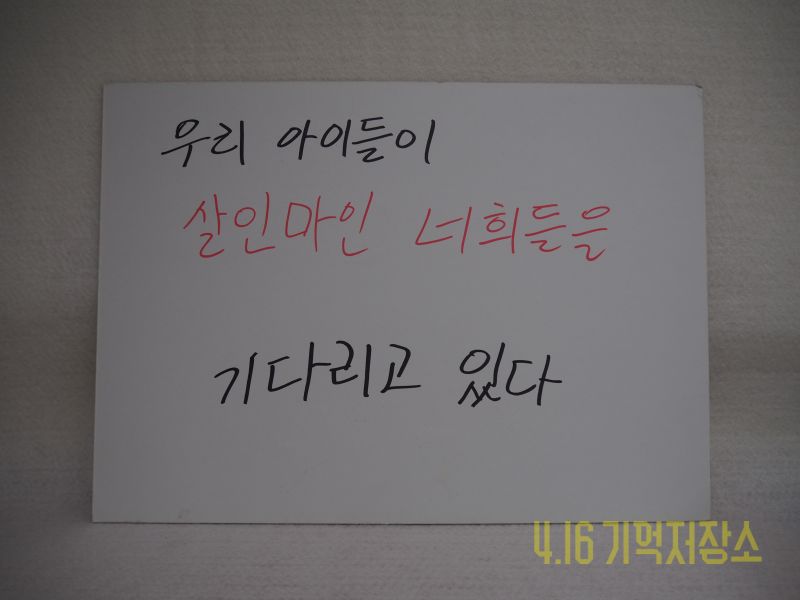 우리 아이들이
살인마인 너희들을
기다리고 있다
4.16 기억저장소